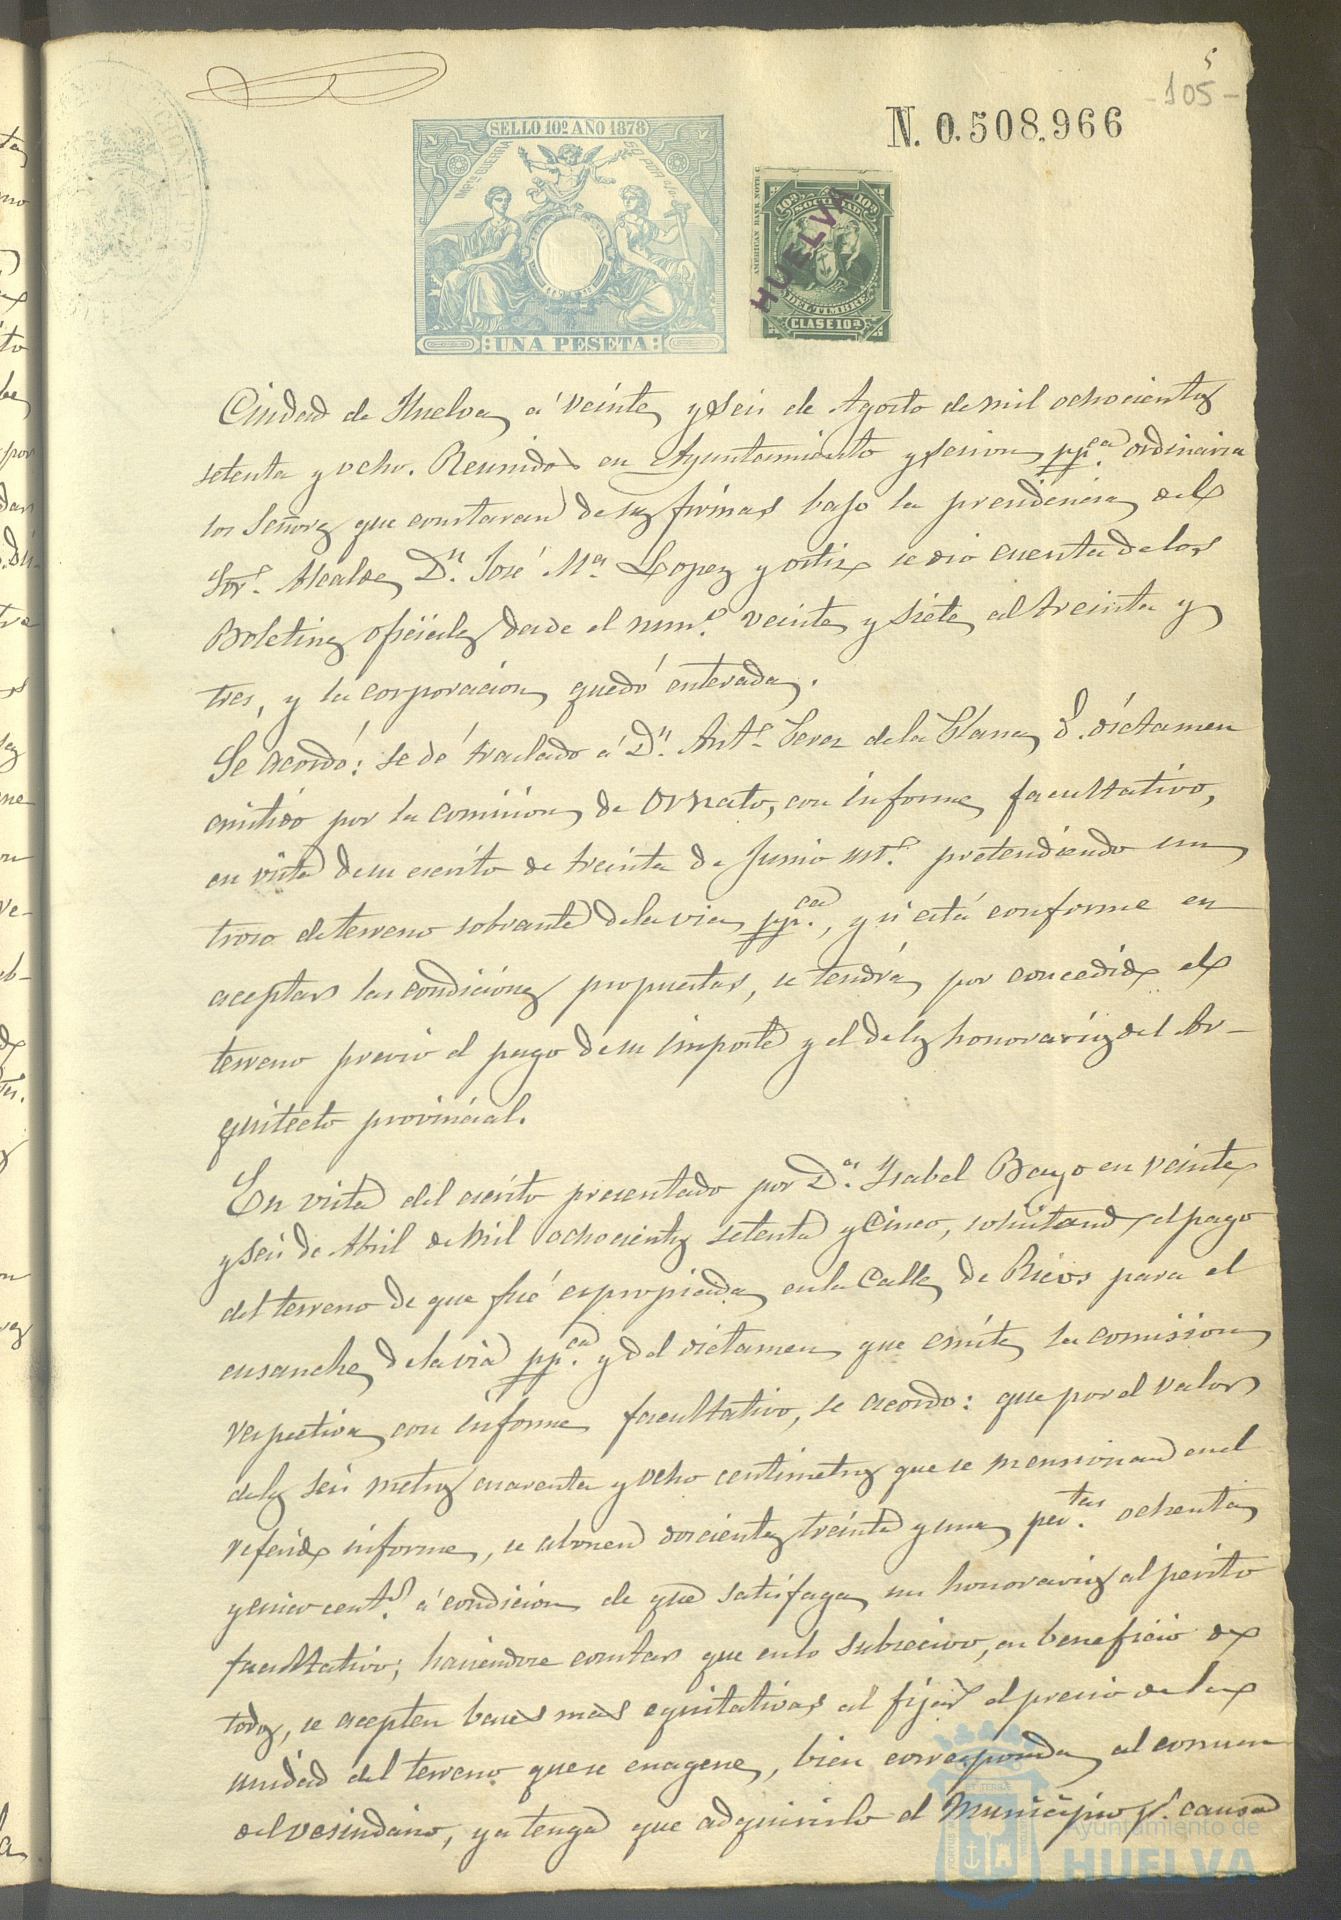 5
-105-
N. 0.508.966
SELLO 10º AÑO 1878
UNA PESETA
AMERICAN BANK NOTE C
10ª 10ª
SOCIEDAD
DEL TIMBRE
CLASE 10ª
HUELVA
Ciudad de Huelva á veinte y seis de Agosto de mil ochocientos
setenta y ocho. Reunidos en Ayuntamiento y sesion pp.ca ordinaria
los Señores que constaran de sus firmas bajo la presidencia del
Sor. Alcalde, Dn. José Ma. Lopez y Ortiz se dió cuenta de los
Boletines oficiales desde el num.o veinte y siete al treinta y
tres, y la corporacion quedó enterada.
Sé acordó: se dé traslado á Dn. Anto. Perez de la Plana, dictamen
emitido por la comision de Ornato, con informe facultativo,
en vista de su escrito de treinta de Junio ult.o pretendiendo un
trozo de terreno sobrante de la via pp.ca, y si está conforme en
aceptar las condiciones propuestas, se tendrá por concedido el
terreno previo el pago de su importe y el de los honorarios del Ar-
quitecto provincial.
En vista del escrito presentado por Da. Isabel Bayo en veinte
y seis de Abril de mil ochocientos setenta y cinco, solicitando el pago
del terreno de que fué espropiada en la Calle de Ricos para el
ensanche de la via pp.ca y del dictamen que emite la comision
respectiva con informe facultativo, se acordó: que por el valor
de los seis metros cuarenta y ocho centimetros que se mensionan en el
referido informe, se abonen doscientas treinta y una pes.tas ochenta
y cinco cent.s á condicion de que satisfaga sus honorarios al perito
facultativo; haciendose constar que en lo subsecivo, en beneficio de
todos, se acepten bases mas equitativas al fijar el precio de la
unidad del terreno que se enagene, bien corresponda al comun
del vesindario, ya tenga que adquirirlo el Municipio p.r causa
Ayuntamiento de
HUELVA